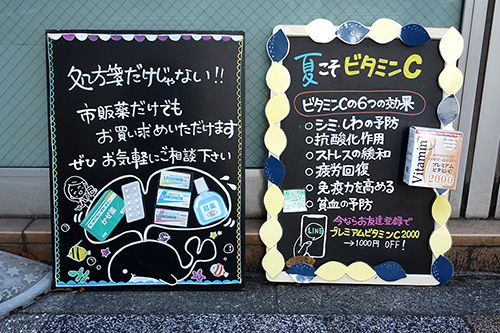 処方箋だけじゃない!!
市販薬だけでも
お買い求めいただけます
ぜひ お気軽にご相談下さい
かぜ薬
目薬
夏こそビタミンC
ビタミンCの6つの効果
○シミ、しわの予防
○抗酸化作用
○ストレスの緩和
○疲労回復
○免疫力を高める
○貧血の予防
今ならお友達登録で
プレミアムビタミンC2000
→1000円 OFF!
LINE
Vitamin
プレミアム
ビタミンC
2000